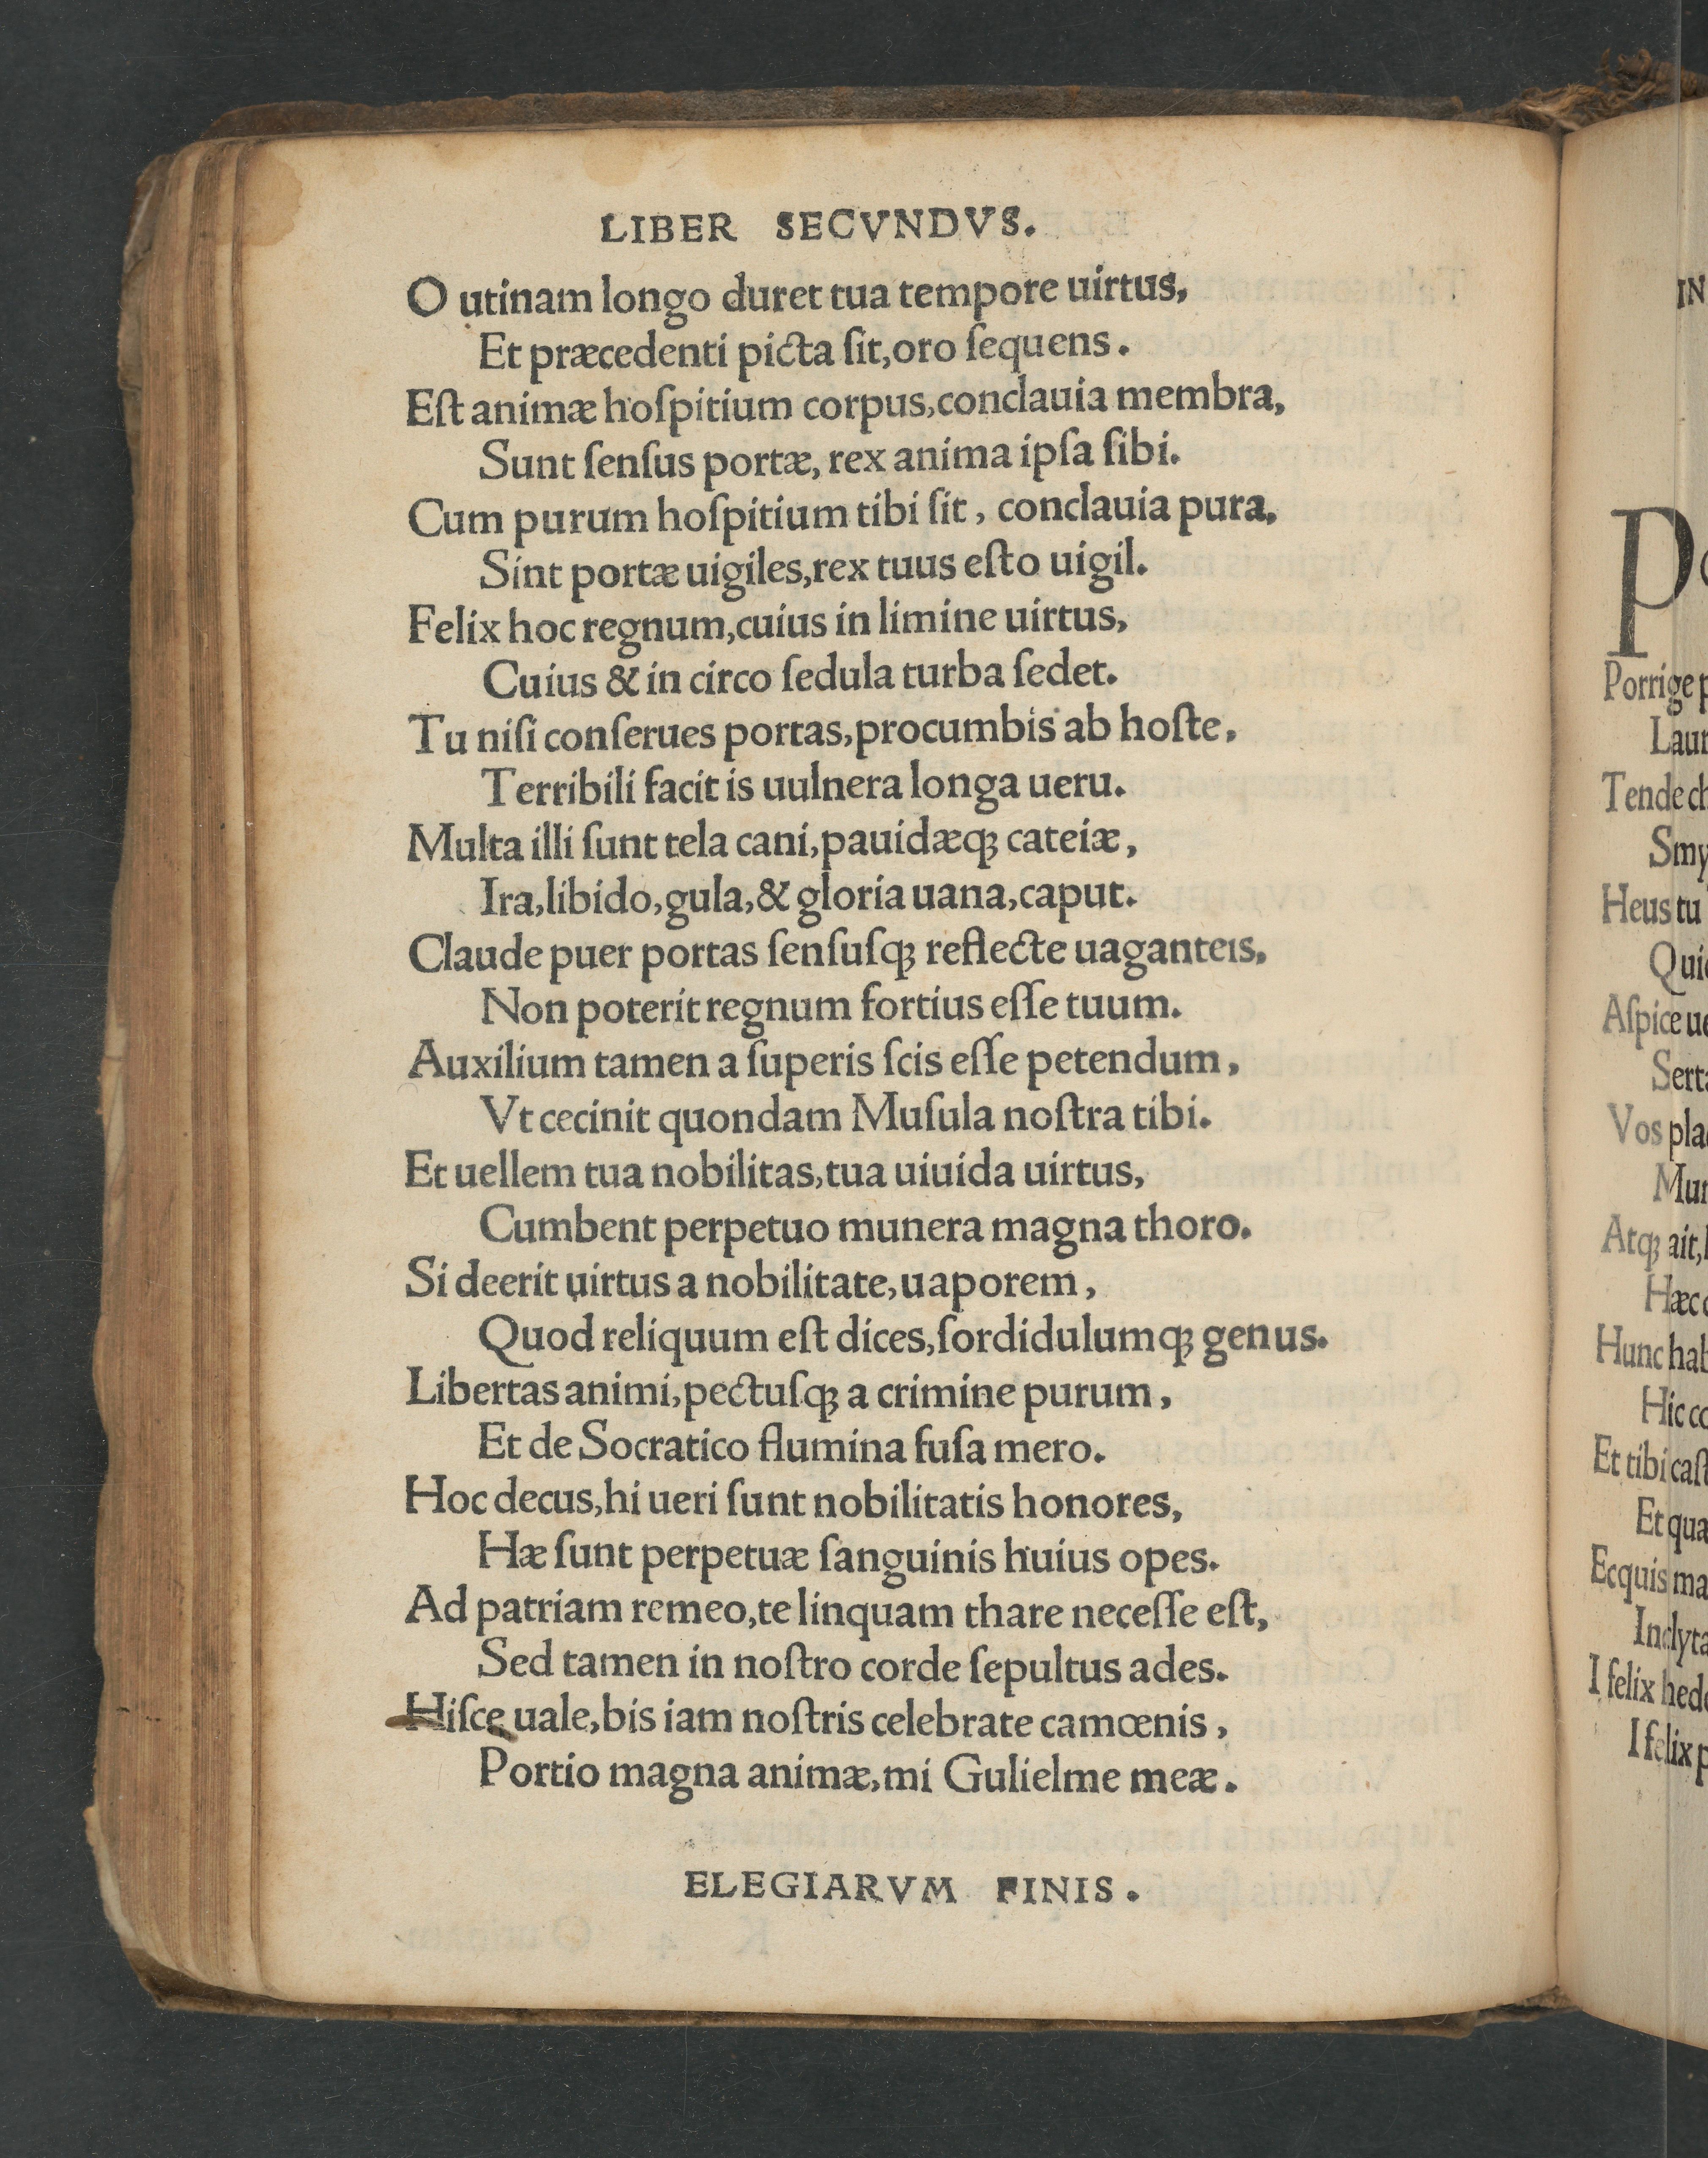 LIBER SECVNDVS.
O utinam longo duret tua tempore uirtus,
Et præcedenti picta ſit, oro ſequens.
Eſt animæ hoſpitium corpus, conclauia membra,
Sunt ſenſus portæ, rex anima ipſa ſibi.
Cum purum hoſpitium tibi ſit, conclauia pura,
Sint portæ uigiles, rex tuus eſto uigil.
Felix hoc regnum, cuius in limine uirtus,
Cuius & in circo ſedula turba ſedet.
Tu niſi conſerues portas, procumbis ab hoſte,
Terribili facit is uulnera longa ueru.
Multa illi ſunt tela cani, pauidæqꝫ cateiæ,
Ira, libido, gula, & gloria uana, caput.
Claude puer portas ſenſuſqꝫ reflecte uaganteis,
Non poterit regnum fortius eſſe tuum.
Auxilium tamen a ſuperis ſcis eſſe petendum,
Vt cecinit quondam Muſula noſtra tibi.
Et uellem tua nobilitas, tua uiuida uirtus,
Cumbent perpetuo munera magna thoro.
Si deerit uirtus a nobilitate, uaporem,
Quod reliquum eſt dices, ſordidulumqꝫ genus.
Libertas animi, pectuſqꝫ a crimine purum,
Et de Socratico flumina fuſa mero.
Hoc decus, hi ueri ſunt nobilitatis honores,
Hæ ſunt perpetuæ ſanguinis huius opes.
Ad patriam remeo, te linquam thare neceſſe eſt,
Sed tamen in noſtro corde ſepultus ades.
Hiſce uale, bis iam noſtris celebrate camœnis,
Portio magna animæ, mi Gulielme meæ.
ELEGIARVM FINIS.
IN
Porrige
Laur
Tende
Smy
Heus tu
Aſpice
Sert
Vos
Atqꝫ ait,
Hæc
Hunc
Hic
Et tibi
Et
Ecquis
I felix
I felix